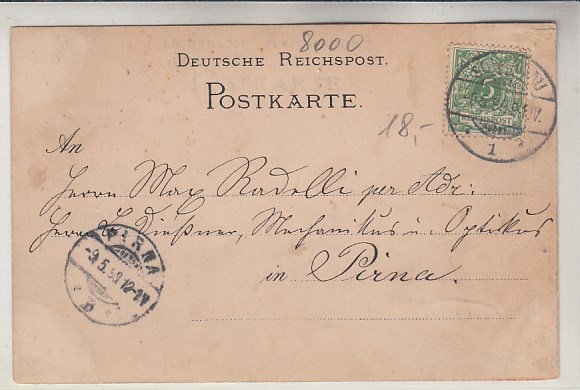 8000
DEUTSCHE REICHSPOST.
POSTKARTE.
5
REICHSPOST
1
18,-
An
Herrn Max Radelli per Adr:
Herrn Dießner, Mechanikus u. Optikus
in Pirna.
PIRNA
-9.5.98.12-1N